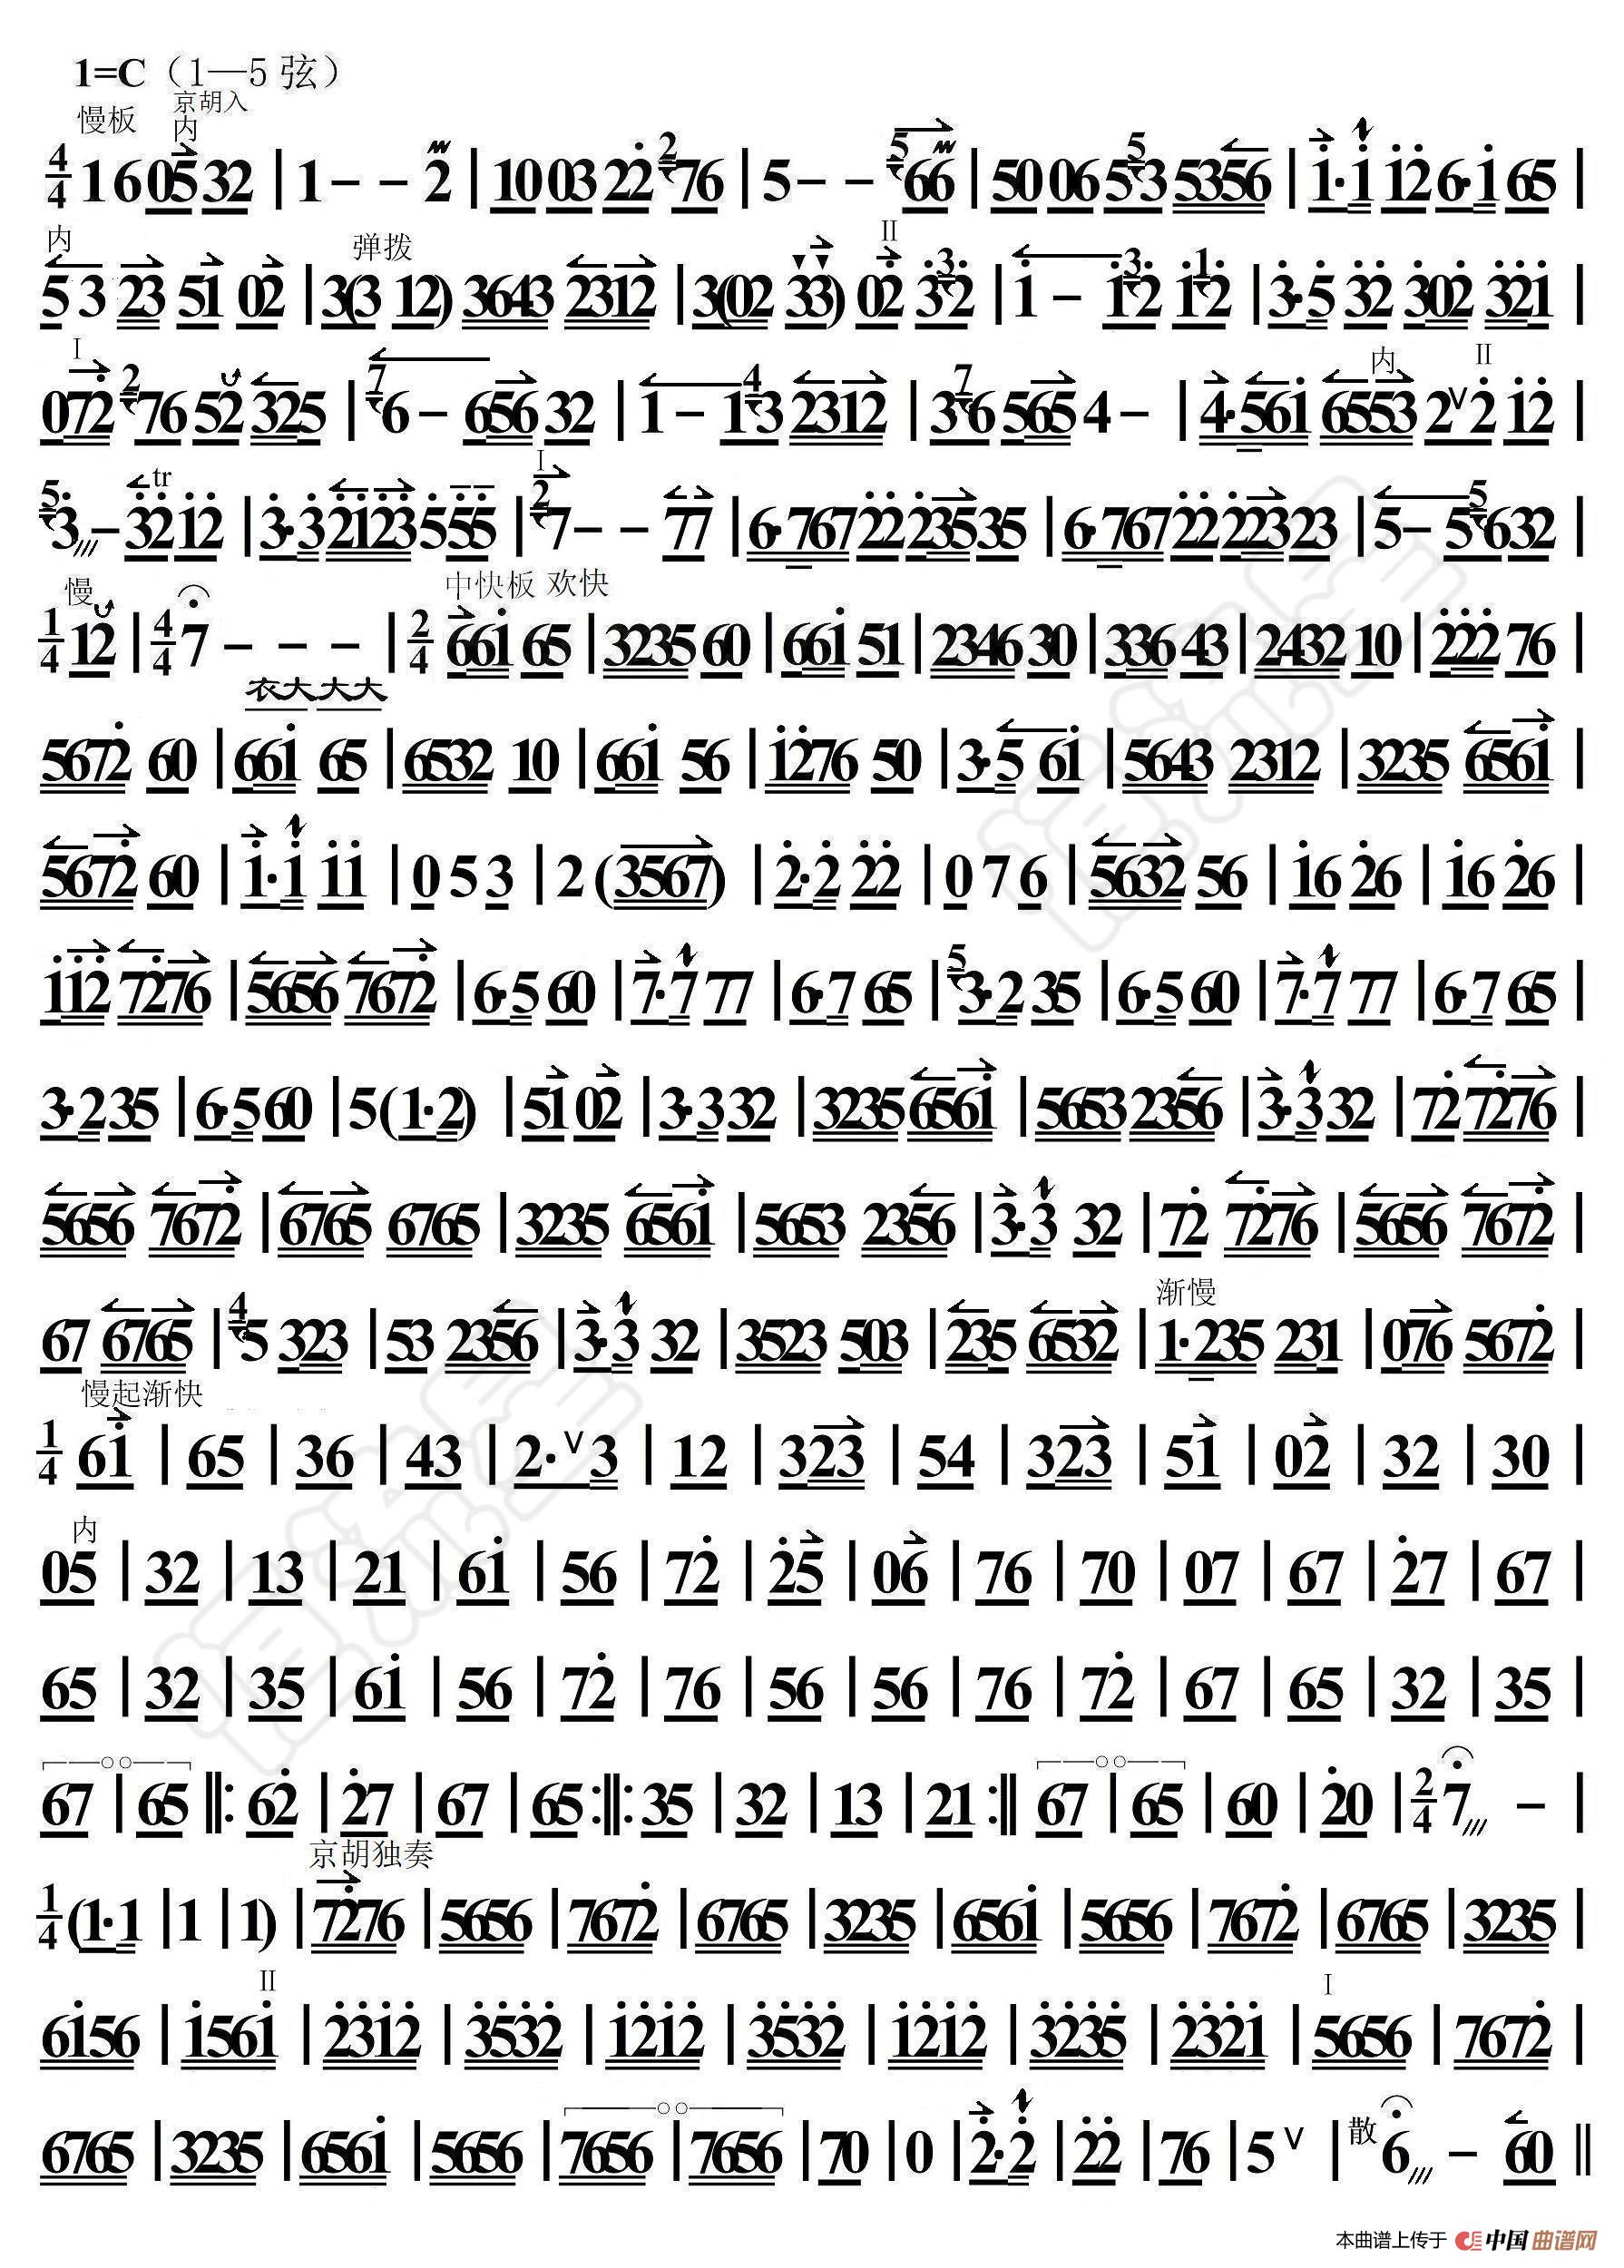 1=C（1—5 弦）
慢板 京胡入
内
4/4 1 6 05 32 | 1 - - 2 | 10 03 22̇ 2 76 | 5 - - 5 66 | 50 06 5 5 3 5356 | 1̇·1̇ 1̇2̇ 6·1̇ 65 |
内 弹拨 II
5 3 23 51 02 | 3(3 12) 3643 2312 | 3(02 33) 02̇ 3̇ 3 2̇ | 1̇ - 1̇ 3 2̇ 1̇ 1 2̇ | 3̇·5̇ 3̇2̇ 3̇02̇ 3̇2̇1̇ |
I 内 II
072̇ 2 76 52 325 | 7 6 - 656 32 | 1 - 1 4 3 2312 | 3 7 6 565 4 - | 4·561̇ 6553 2 V 2̇ 1̇2̇ |
tr I
5 3̇ - 3̇2̇ 1̇2̇ | 3̇·3̇ 2̇1̇2̇3̇ 5̇ 5̇5̇5̇ | 2 7 - - 77 | 6·767 2̇2̇ 2̇35 35 | 6·767 2̇2̇ 2̇2̇23 23 | 5 - 5 5 6 32 |
慢 中快板 欢快
1/4 12 | 4/4 7 - - - | 2/4 661̇ 65 | 3235 60 | 661̇ 51 | 2346 30 | 336 43 | 2432 10 | 2̇2̇2̇ 76 |
衣大大大
5672̇ 60 | 661̇ 65 | 6532 10 | 661̇ 56 | 1̇2̇76 50 | 3·5 61̇ | 5643 2312 | 3235 6561̇ |
5672̇ 60 | 1̇·1̇ 1̇1̇ | 0 5 3 | 2 (3567) | 2̇·2̇ 2̇2̇ | 0 7 6 | 5632 56 | 1̇6 2̇6 | 1̇6 2̇6 |
1̇1̇2̇ 72̇76 | 5656 7672̇ | 6·5 60 | 7·7 77 | 6·7 65 | 5 3·2 35 | 6·5 60 | 7·7 77 | 6·7 65 |
3·2 35 | 6·5 60 | 5(1·2) | 51 02 | 3·3 32 | 3235 6561̇ | 5653 2356 | 3·3 32 | 72̇ 72̇76 |
5656 7672̇ | 6765 6765 | 3235 6561̇ | 5653 2356 | 3·3 32 | 72̇ 72̇76 | 5656 7672̇ |
渐慢
67 6765 | 4 5 323 | 53 2356 | 3·3 32 | 3523 503 | 235 6532 | 1·235 231 | 076 5672̇ |
慢起渐快
1/4 61̇ | 65 | 36 | 43 | 2· V 3 | 12 | 323 | 54 | 323 | 51 | 02 | 32 | 30 |
内
05 | 32 | 13 | 21 | 61̇ | 56 | 72̇ | 2̇5 | 06 | 76 | 70 | 07 | 67 | 2̇7 | 67 |
65 | 32 | 35 | 61̇ | 56 | 72̇ | 76 | 56 | 56 | 76 | 72̇ | 67 | 65 | 32 | 35 |
67 | 65 ‖: 62̇ | 2̇7 | 67 | 65 :‖: 35 | 32 | 13 | 21 :‖ 67 | 65 | 60 | 2̇0 | 2/4 7 - |
京胡独奏
1/4 (1·1 | 1 | 1) | 72̇76 | 5656 | 7672̇ | 6765 | 3235 | 6561̇ | 5656 | 7672̇ | 6765 | 3235 |
II I
61̇56 | 1̇561̇ | 2̇3̇1̇2̇ | 3̇5̇3̇2̇ | 1̇2̇1̇2̇ | 3̇5̇3̇2̇ | 1̇2̇1̇2̇ | 3̇2̇3̇5̇ | 2̇3̇2̇1̇ | 5656 | 7672̇ |
6765 | 3235 | 6561̇ | 5656 | 7656 | 7656 | 70 | 0 | 2̇·2̇ | 2̇2̇ | 76 | 5 V | 散 6 - 60 ‖
本曲谱上传于 中国曲谱网